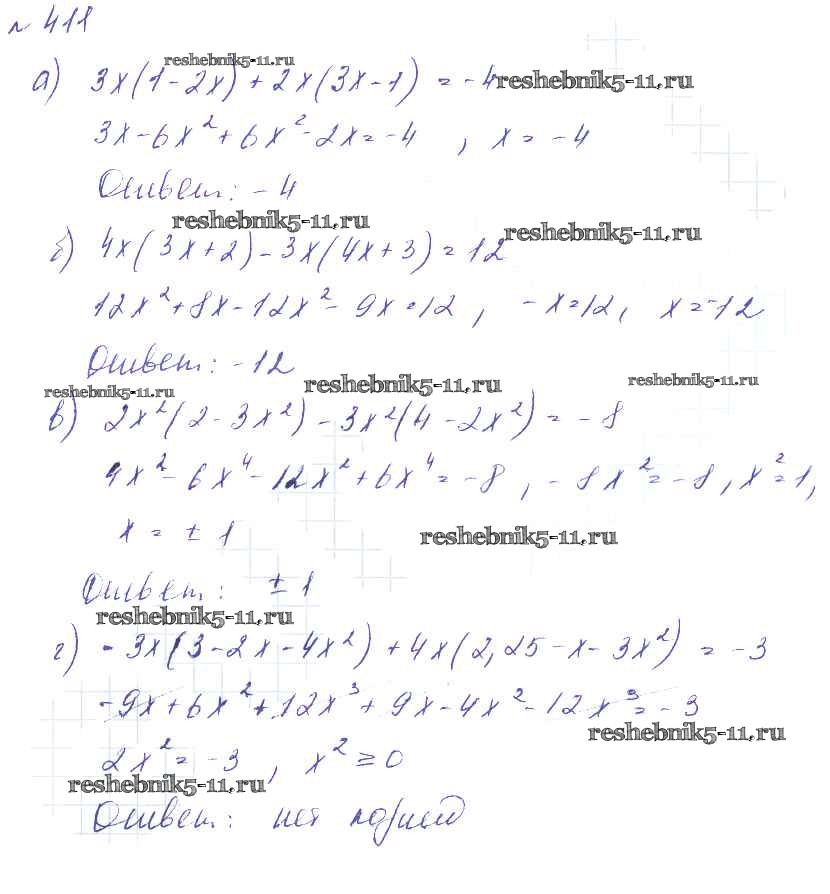 № 411
reshebnik5-11.ru
а) 3x(1-2x)+2x(3x-1) = -4 reshebnik5-11.ru
3x-6x²+6x²-2x=-4 , x = -4
Ответ: -4
reshebnik5-11.ru reshebnik5-11.ru
б) 4x(3x+2)-3x(4x+3)=12
12x²+8x-12x²-9x=12, -x=12, x=-12
Ответ: -12
reshebnik5-11.ru reshebnik5-11.ru reshebnik5-11.ru
в) 2x²(2-3x²)-3x²(4-2x²)= -8
4x²-6x⁴-12x²+6x⁴= -8, -8x²=-8, x²=1,
x = ±1
reshebnik5-11.ru
Ответ: ±1
reshebnik5-11.ru
г) -3x(3-2x-4x²)+4x(2,25-x-3x²) = -3
-9x+6x²+12x³+9x-4x²-12x³=-3
reshebnik5-11.ru
2x²=-3, x²≥0
reshebnik5-11.ru
Ответ: нет корней